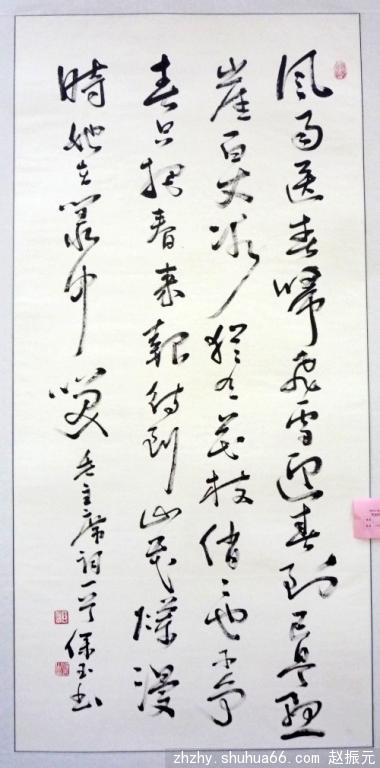 风雨送春归飞雪迎春到已是悬
崖百丈冰犹有花枝俏俏也不争
春只把春来报待到山花烂漫
时她在丛中笑 毛主席词一首 保玉书
zhzhy.shuhua66.com 赵振元